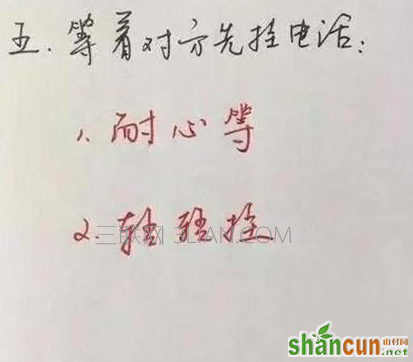 五. 等着对方先挂电话:
1. 耐心等
2. 轻轻挂
三联网 3LIAN.COM
shancun 山村网
.net